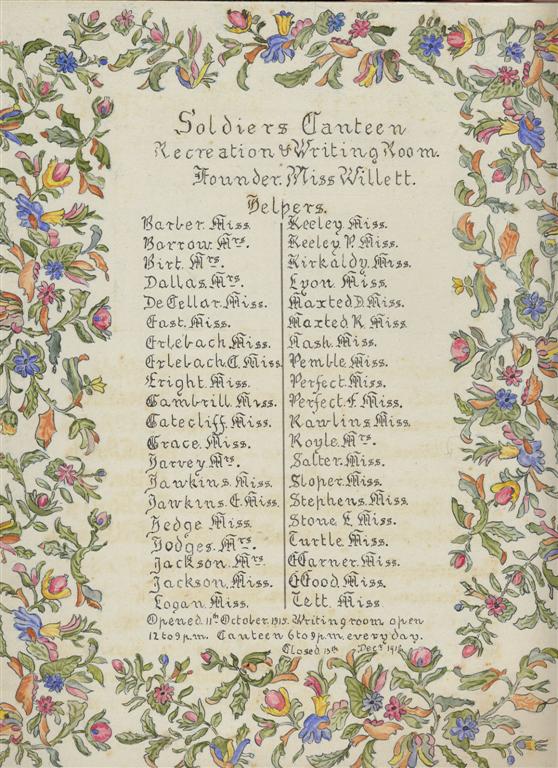 Soldiers Canteen
Recreation & Writing Room.
Founder. Miss Willett.
Helpers.
Barber. Miss.
Barrow. Mrs.
Birt. Mrs.
Dallas. Mrs.
De Cellar. Miss.
East. Miss.
Erlebach. Miss.
Erlebach C. Miss.
Fright. Miss.
Gambrill. Miss.
Gatecliff. Miss.
Grace. Miss.
Harvey. Mrs.
Hawkins. Miss.
Hawkins. E. Miss.
Hedge Miss.
Hodges. Mrs.
Jackson. Mrs.
Jackson. Miss.
Logan. Miss.
Keeley. Miss.
Keeley P. Miss.
Kirkaldy. Miss.
Lyon Miss.
Maxted D. Miss.
Maxted K. Miss.
Nash. Miss.
Pemble. Miss.
Perfect. Miss.
Perfect. F. Miss.
Rawlins Miss.
Royle. Mrs.
Salter. Miss.
Sloper. Miss.
Stephens. Miss.
Stone L. Miss.
Turtle. Miss.
Warner. Miss.
Wood. Miss.
Miss
Opened. 11th October. 1915. Writing room open
12 to 9 p.m. Canteen 6 to 9 p.m. every day.
Closed 15th Decr 1918